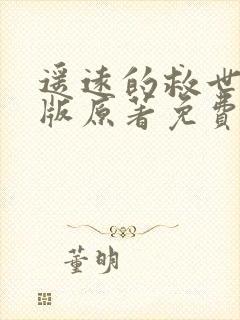 遥远的救世
版原著免费
董明